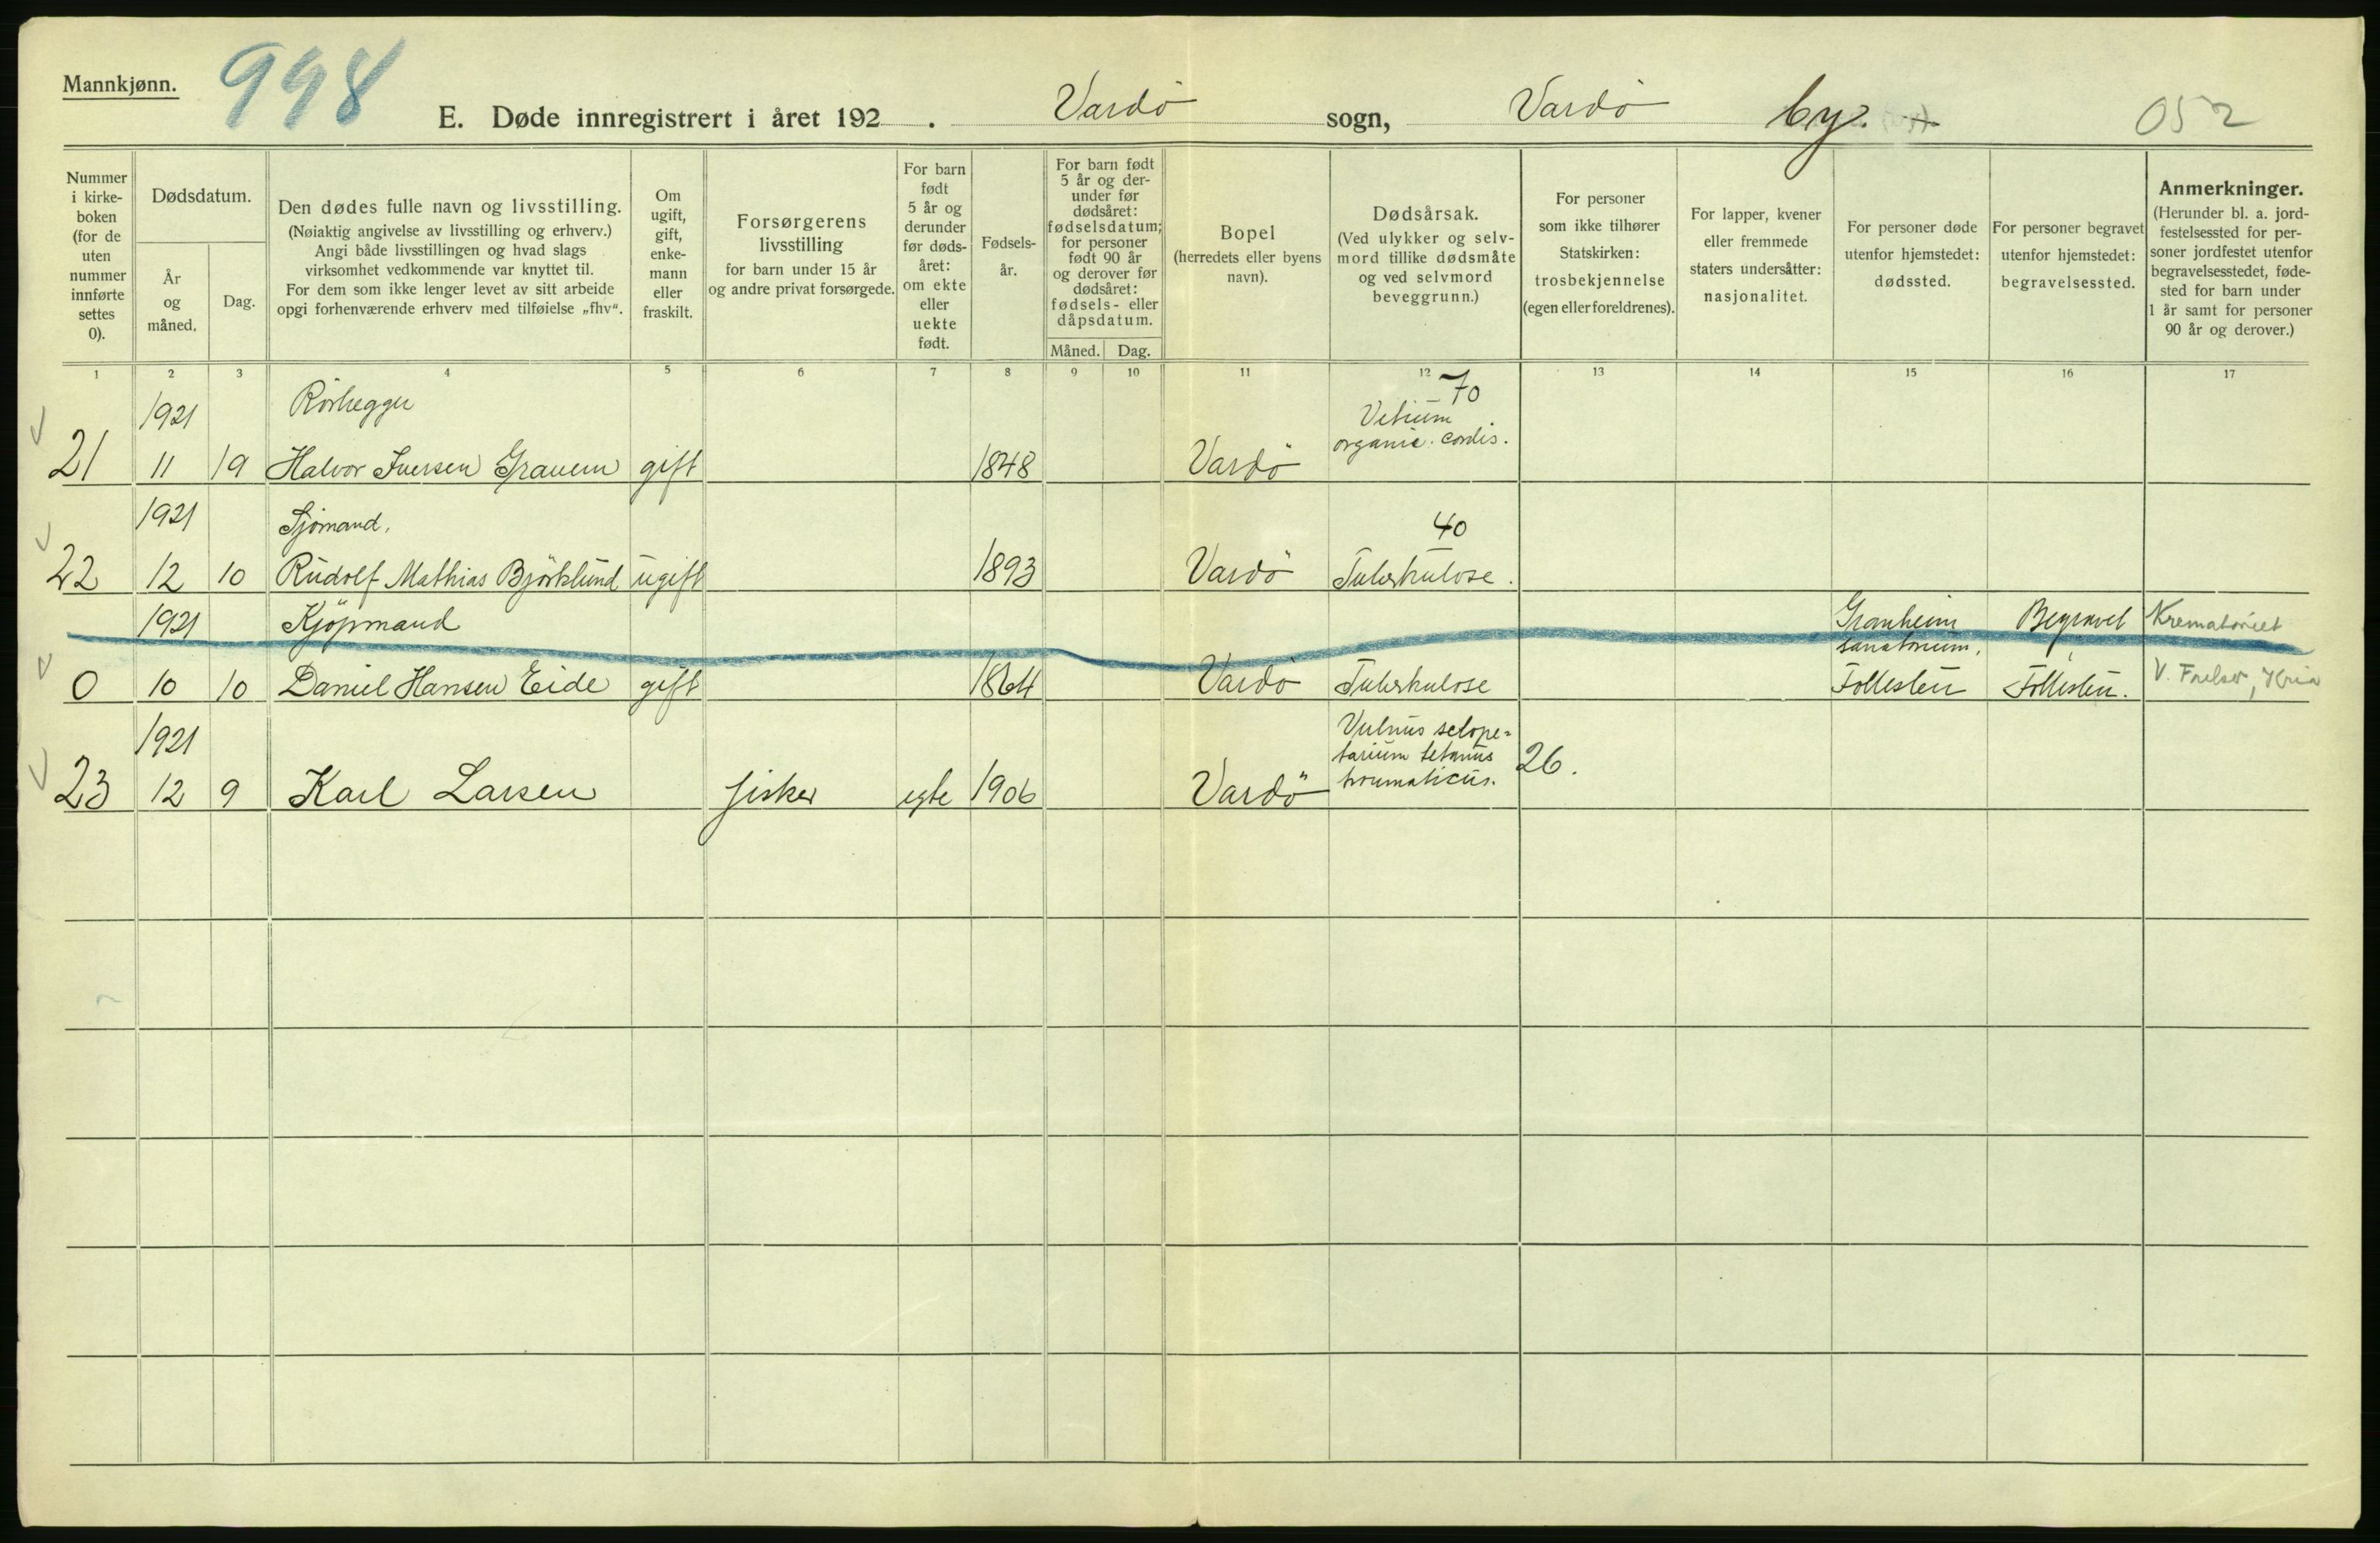 Mannkjønn.
998
E. Døde innregistrert i året 192 . Vardö sogn, Vardö by.
052
Nummer i kirke-boken (for de uten nummer innførte settes 0).
Dødsdatum.
År og måned.
Dag.
Den dødes fulle navn og livsstilling.
(Nøiaktig angivelse av livsstilling og erhverv.)
Angi både livsstillingen og hvad slags
virksomhet vedkommende var knyttet til.
For dem som ikke lenger levet av sitt arbeide
opgi forhenværende erhverv med tilføielse „fhv".
Om ugift, gift, enke-mann eller fraskilt.
Forsørgerens
livsstilling
for barn under 15 år
og andre privat forsørgede.
For barn født 5 år og derunder før døds-året: om ekte eller uekte født.
Fødsels-år.
For barn født 5 år og der-under før dødsåret: fødselsdatum; for personer født 90 år og derover før dødsåret: fødsels- eller dåpsdatum.
Måned. Dag.
Bopel
(herredets eller byens
navn).
Dødsårsak.
(Ved ulykker og selv-
mord tillike dødsmåte
og ved selvmord
beveggrunn.)
For personer
som ikke tilhører
Statskirken:
trosbekjennelse
(egen eller foreldrenes).
For lapper, kvener
eller fremmede
staters undersåtter:
nasjonalitet.
For personer døde
utenfor hjemstedet:
dødssted.
For personer begravet
utenfor hjemstedet:
begravelsessted.
Anmerkninger.
(Herunder bl. a. jord-
festelsessted for per-
soner jordfestet utenfor
begravelsesstedet, føde-
sted for barn under
1 år samt for personer
90 år og derover.)
1 2 3 4 5 6 7 8 9 10 11 12 13 14 15 16 17
1921 70
Vetium
organic. cordis.
21 11 19 Halvor Iversen gift 1848 Vardö
1921 Sjömand. 40
22 12 10 Rudolf Mathias Björklund ugift 1893 Vardö Tuberkulose.
1921 Kjöpmand Granheim Begravet Krematoriet
sanatorium.
0 10 10 Daniel Hansen Eide gift 1864 Vardö Tuberkulose Follesten Follesten. V. , Kria
1921 Vulnus sclope-
tarium tetanus 26.
traumaticus.
23 12 9 Karl Larsen fisker egte 1906 Vardö